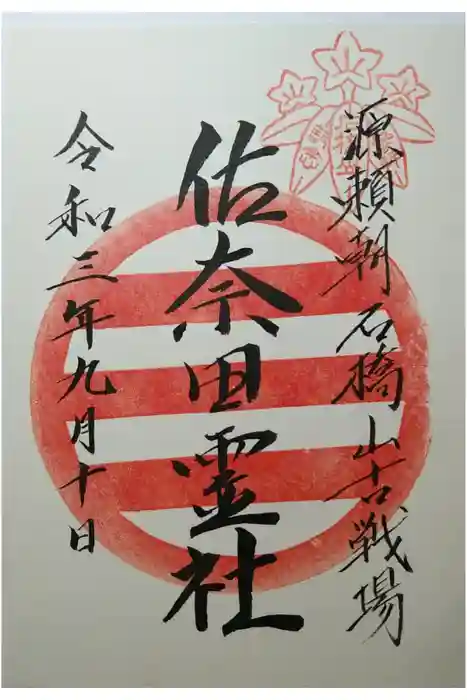 源頼朝 石橋山古戦場
佐奈田霊社
令和三年九月十日